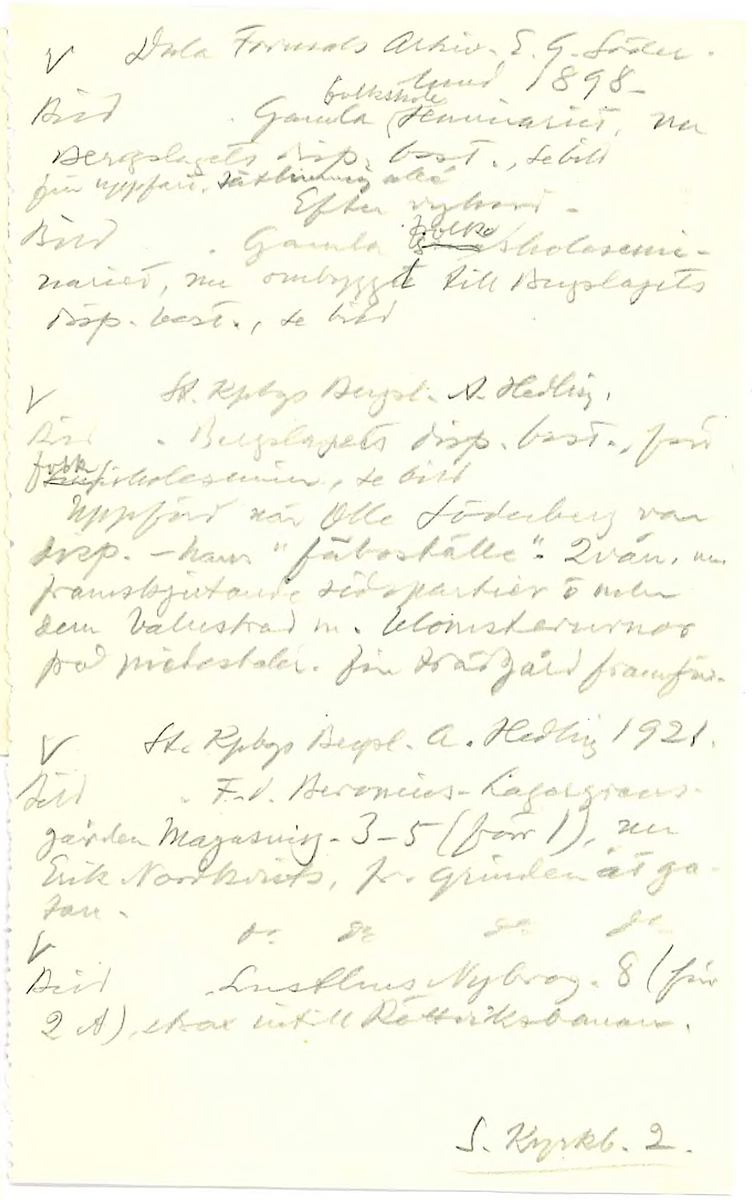 V Dala Fornsals Arkiv. E. G. Söder-
lund 1898-
Bild . Gamla folkskole
seminariet, nu
Bergslagets disp. bost., se bild
fin uppfart,
Efter vykort -
Bild . Gamla folk
skolesemi-
nariet, nu ombyggt till Bergslagets
disp. bost., se bild
V St. Kpbgs Bergsl. A. Hedling.
Bild . Bergslagets disp. bost., förr
folk
skolesemin., se bild
Uppförd när Olle Söderberg var
disp. - hans "fäboställe". 2 vån. m.
framskjutande sidopartier o mellan
dem balustrad m. blomsterurnor
på piedestaler. Fin trädgård framför.
V St. Kpbgs Bergsl. A. Hedling 1921.
Bild . F.d. Beronius-Lagergrens-
gården Magasinsg. 3-5 (förr 1), nu
Erik Nordkvists, fr. grinden åt ga-
tan.
V do do do do
Bild . Lusthus Nybrog. 8 (förr
2 A), strax intill Rättviksbanan.
S. Kyrkb. 2.